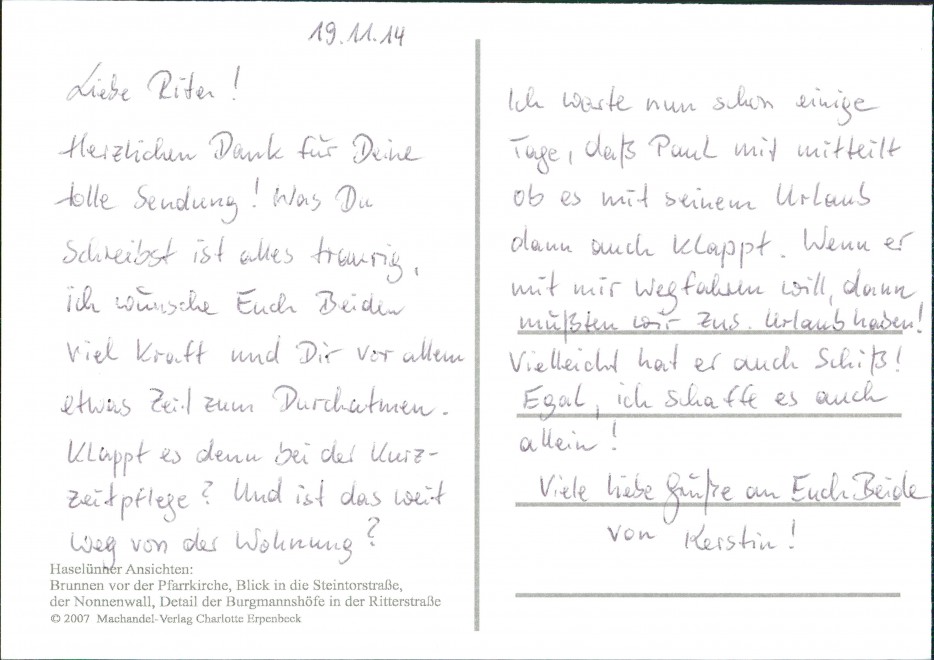 19.11.14
Liebe Riten!
Herzlichen Dank für Deine
tolle Sendung! Was Du
schreibst ist alles traurig,
ich wünsche Euch Beiden
viel Kraft und Dir vor allem
etwas Zeit zum Durchatmen.
Klappt es denn bei der Kurz-
zeitpflege? Und ist das weit
weg von der Wohnung?
Haselünner Ansichten:
Brunnen vor der Pfarrkirche, Blick in die Steintorstraße,
der Nonnenwall, Detail der Burgmannshöfe in der Ritterstraße
© 2007 Machandel-Verlag Charlotte Erpenbeck
Ich warte nun schon einige
Tage, daß Paul mir mitteilt
ob es mit seinem Urlaub
dann auch klappt. Wenn er
mit mir wegfahren will, dann
müßten wir zus. Urlaub haben!
Vielleicht hat er auch Schiß!
Egal, ich schaffe es auch
allein!
Viele liebe Grüße an Euch Beide
von Kerstin!